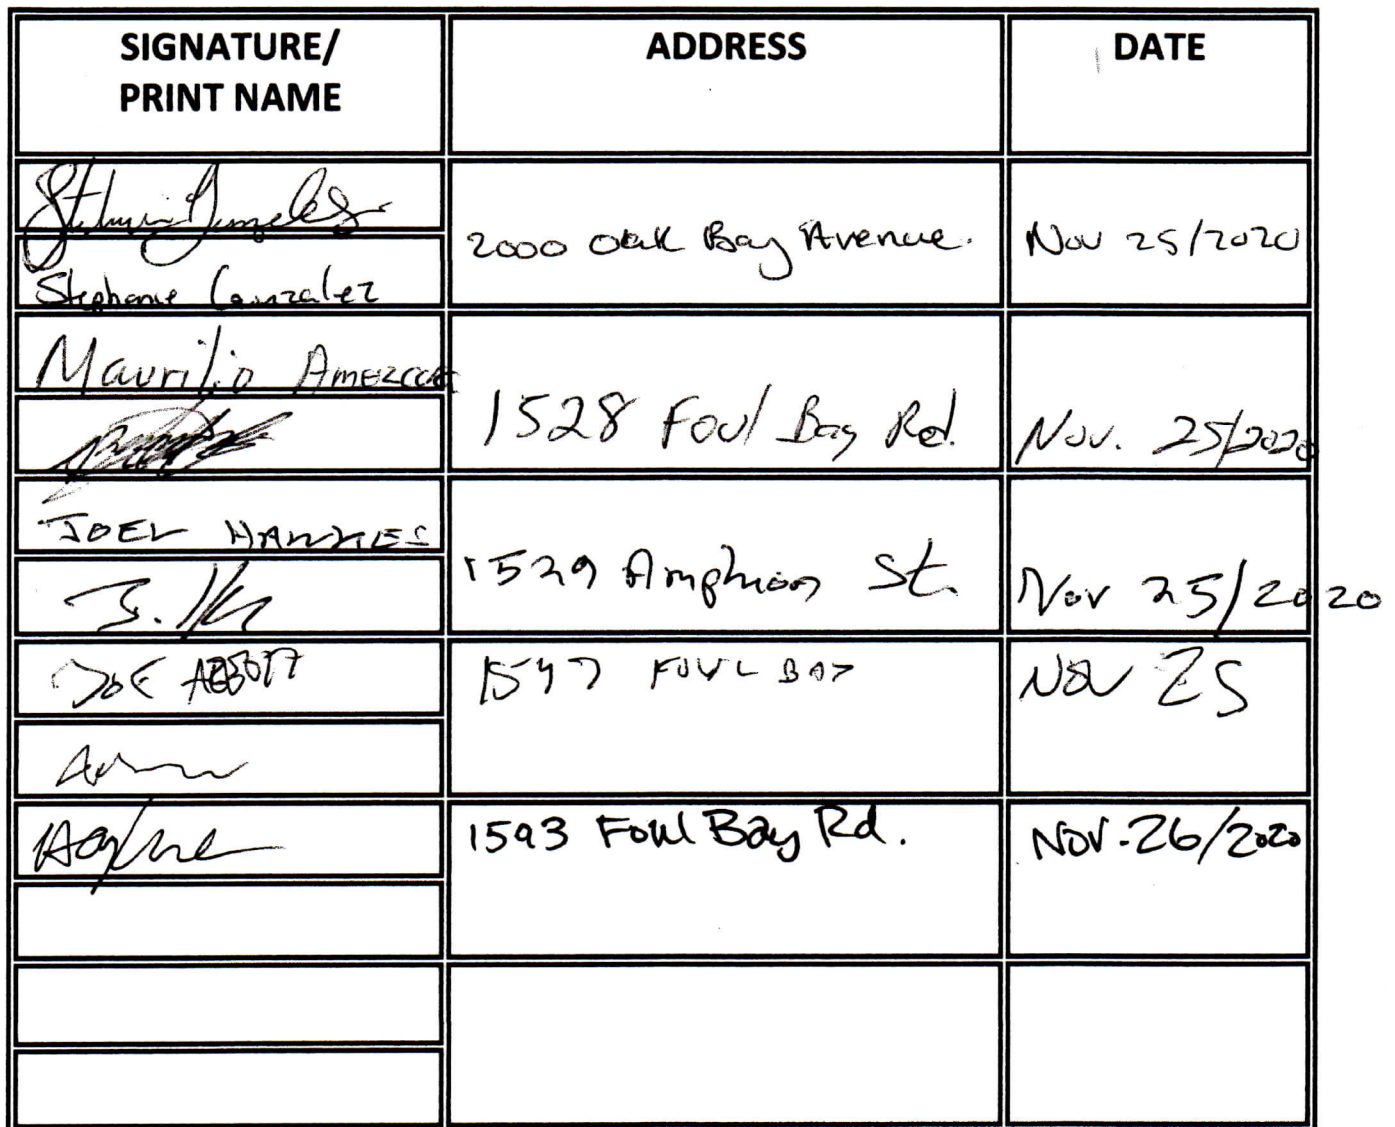 SIGNATURE/ ADDRESS DATE
PRINT NAME
Stephanie Gonzalez 2000 Oak Bay Avenue. Nov 25/2020
Maurilio Amezcua
1528 Foul Bay Rd. Nov. 25/2020
JOEL HAWKES
1529 Amphion St. Nov 25/2020
JOE ABBOTT 1547 FOUL BAY NOV 25
1593 Foul Bay Rd. NOV.26/2020